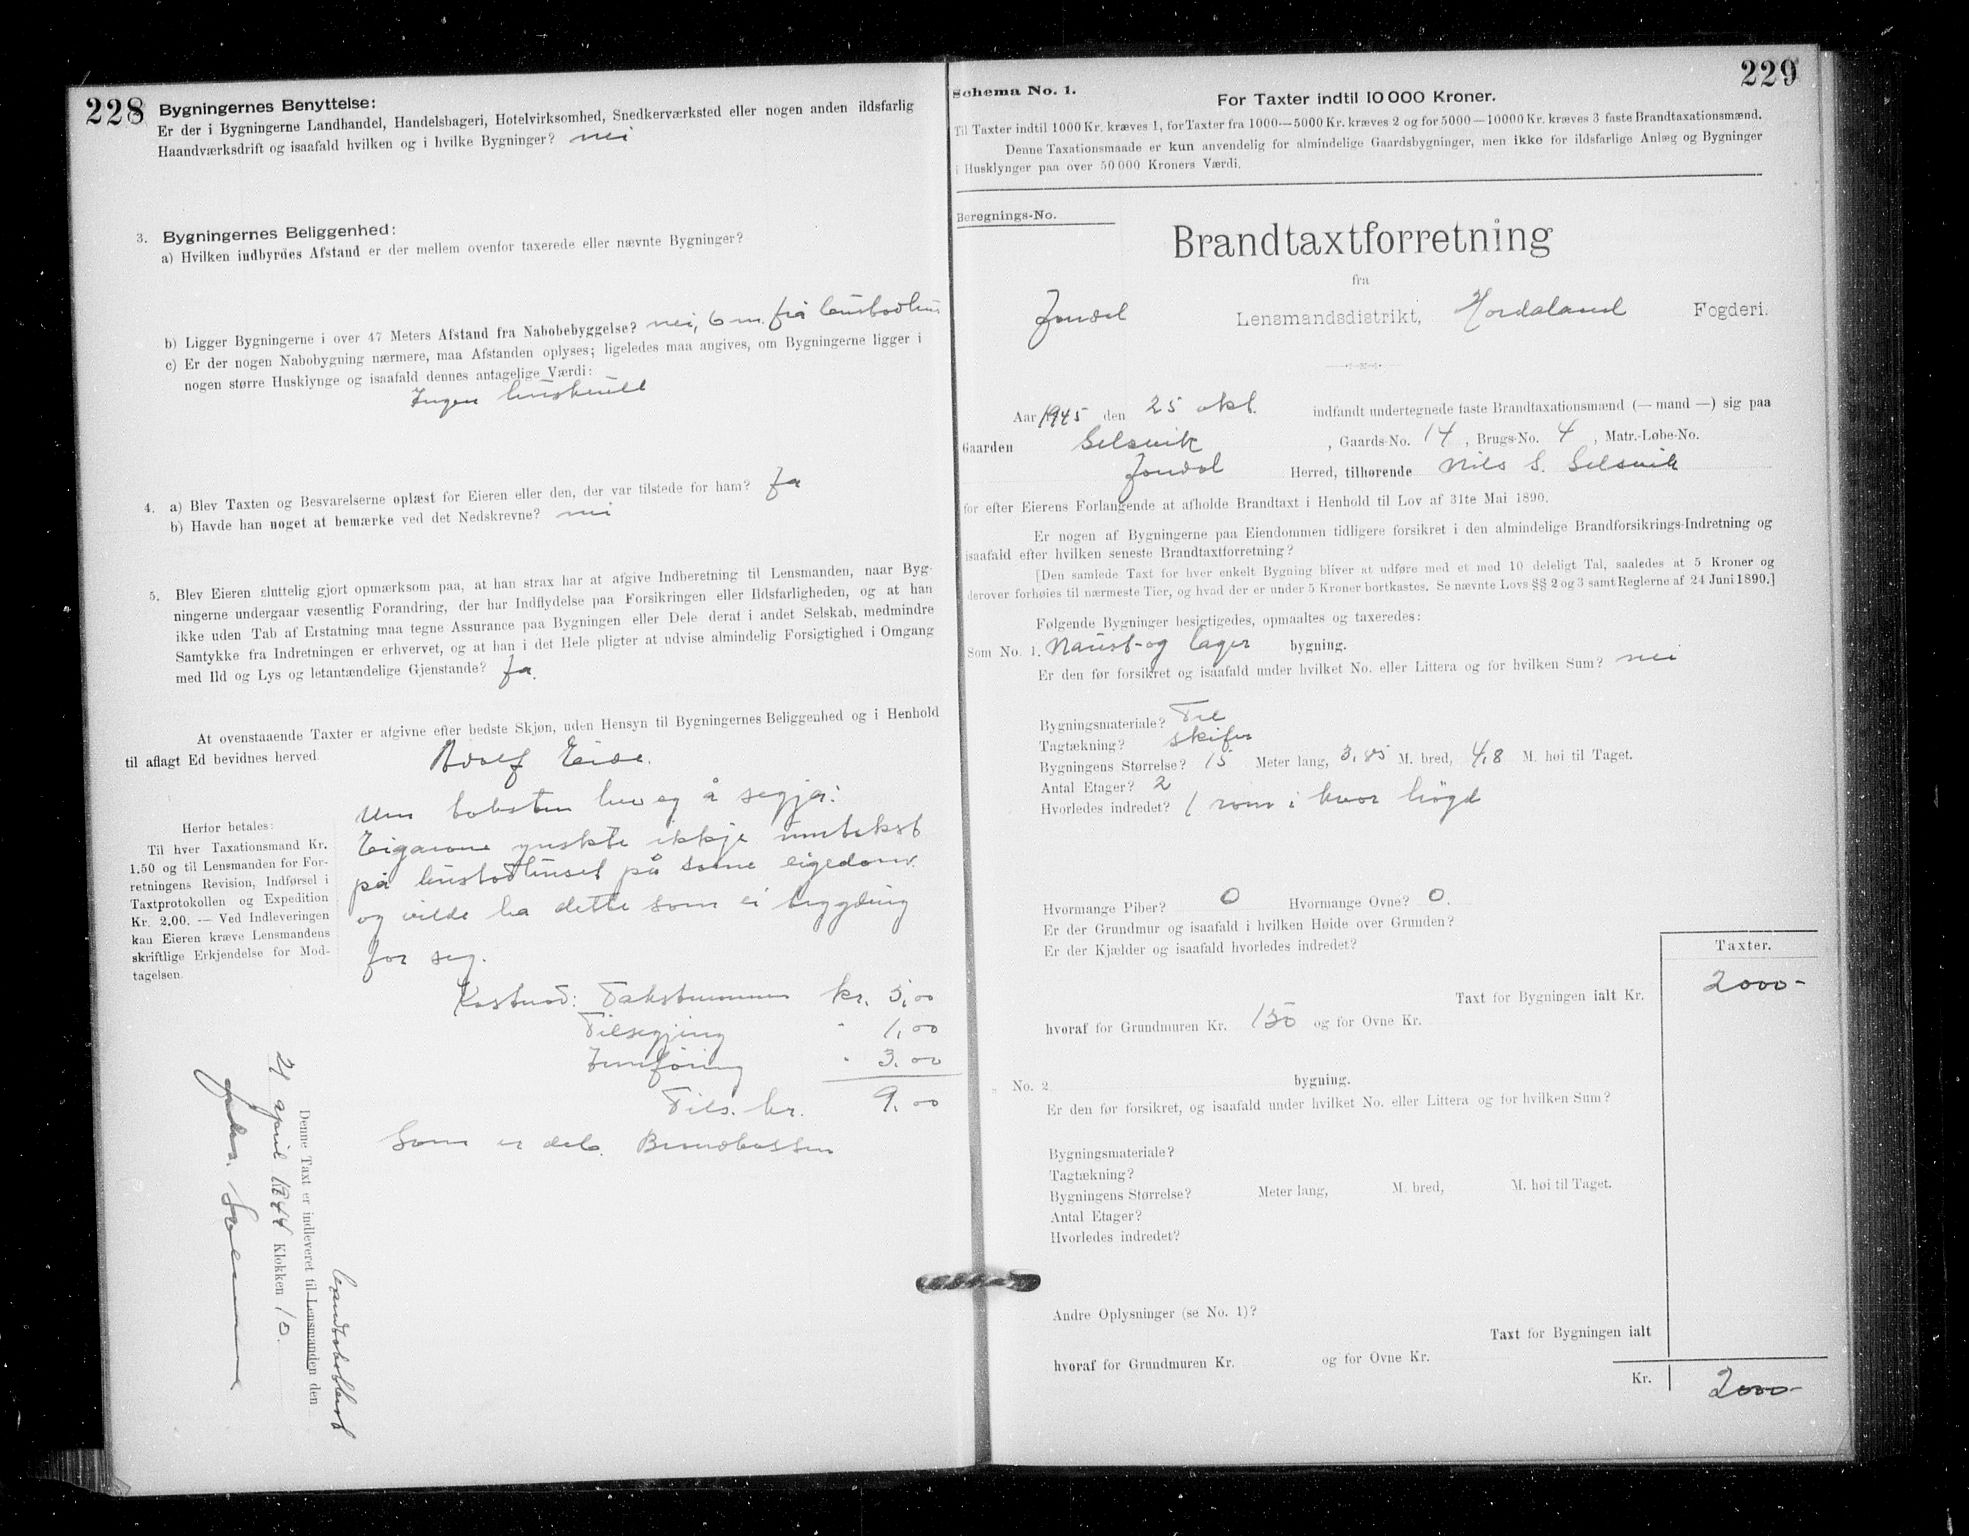 228
Bygningernes Benyttelse:
Er der i Bygningerne Landhandel, Handelsbageri, Hotelvirksomhed, Snedkerværksted eller nogen anden ildsfarlig
Haandværksdrift og isaafald hvilken og i hvilke Bygninger? nei
3. Bygningernes Beliggenhed:
a) Hvilken indbyrdes Afstand er der mellem ovenfor taxerede eller nævnte Bygninger?
b) Ligger Bygningerne i over 47 Meters Afstand fra Nabobebyggelse? nei, 6 m. frå
c) Er der nogen Nabobygning nærmere, maa Afstanden oplyses; ligeledes maa angives, om Bygningerne ligger i
nogen større Husklynge og isaafald dennes antagelige Værdi:
Ingen
4. a) Blev Taxten og Besvarelserne oplæst for Eieren eller den, der var tilstede for ham? Ja
b) Havde han noget at bemærke ved det Nedskrevne? nei
5. Blev Eieren sluttelig gjort opmærksom paa, at han strax har at afgive Indberetning til Lensmanden, naar Byg-
ningerne undergaar væsentlig Forandring, der har Indflydelse paa Forsikringen eller Ildsfarligheden, og at han
ikke uden Tab af Erstatning maa tegne Assurance paa Bygningen eller Dele deraf i andet Selskab, medmindre
Samtykke fra Indretningen er erhvervet, og at han i det Hele pligter at udvise almindelig Forsigtighed i Omgang
med Ild og Lys og letantændelige Gjenstande? Ja.
At ovenstaaende Taxter er afgivne efter bedste Skjøn, uden Hensyn til Bygningernes Beliggenhed og i Henhold
til aflagt Ed bevidnes herved.
Adolf Eide.
Um taksten hev eg å segja:
Eigaren ynskte ikkje umtakst
på på same eigedom
og vilde ha dette som ei bygding
for seg.
Herfor betales:
Til hver Taxationsmand Kr.
1.50 og til Lensmanden for For-
retningens Revision, Indførsel i
Taxtprotokollen og Expedition
Kr. 2.00. — Ved Indleveringen
kan Eieren kræve Lensmandens
skriftlige Erkjendelse for Mod-
tagelsen.
Kostnad: Takstmennen kr. 5,00
Tilsegjing " 1,00
Innføring " 3.00
Tils. kr. 9.00
Som er det. Brandkassen
Denne Taxt er indleveret til Lensmanden den
21 april 1944 Klokken 10.
229
Schema No. 1.
For Taxter indtil 10 000 Kroner.
Til Taxter indtil 1000 Kr. kræves 1, for Taxter fra 1000—5000 Kr. kræves 2 og for 5000—10000 Kr. kræves 3 faste Brandtaxationsmænd.
Denne Taxationsmaade er kun anvendelig for almindelige Gaardsbygninger, men ikke for ildsfarlige Anlæg og Bygninger
i Husklynger paa over 50 000 Kroners Værdi.
Beregnings-No.
Brandtaxtforretning
fra
Jondal Lensmandsdistrikt, Hordaland Fogderi.
Aar 1945 den 25 okt. indfandt undertegnede faste Brandtaxationsmænd (— mand —) sig paa
Gaarden Selsvik, Gaards-No. 14, Brugs-No. 4, Matr.-Løbe-No.
Jondal Herred, tilhørende Nils S. Selsvik
for efter Eierens Forlangende at afholde Brandtaxt i Henhold til Lov af 31te Mai 1890.
Er nogen af Bygningerne paa Eiendommen tidligere forsikret i den almindelige Brandforsikrings-Indretning og
isaafald efter hvilken seneste Brandtaxtforretning?
[Den samlede Taxt for hver enkelt Bygning bliver at udføre med et med 10 deleligt Tal, saaledes at 5 Kroner og
derover forhøies til nærmeste Tier, og hvad der er under 5 Kroner bortkastes. Se nævnte Lovs §§ 2 og 3 samt Reglerne af 24 Juni 1890.]
Følgende Bygninger besigtigedes, opmaaltes og taxeredes:
Som No. 1. Naust- og lager bygning.
Er den før forsikret og isaafald under hvilket No. eller Littera og for hvilken Sum? nei
Bygningsmateriale? Tre
Tagtækning? Skifer
Bygningens Størrelse? 15 Meter lang, 3,85 M. bred, 4,8 M. høi til Taget.
Antal Etager? 2
Hvorledes indredet? 1 rom i hvor høgd
Hvormange Piber? 0 Hvormange Ovne? 0.
Er der Grundmur og isaafald i hvilken Høide over Grunden?
Er der Kjælder og isaafald hvorledes indredet?
Taxter.
Taxt for Bygningen ialt Kr. 2000-
hvoraf for Grundmuren Kr. 150 og for Ovne Kr.
" No. 2. bygning.
Er den før forsikret, og isaafald under hvilket No. eller Littera og for hvilken Sum?
Bygningsmateriale?
Tagtækning?
Bygningens Størrelse? Meter lang, M. bred, M. høi til Taget.
Antal Etager?
Hvorledes indredet?
Andre Oplysninger (se No. 1)?
Taxt for Bygningen ialt
hvoraf for Grundmuren Kr. og for Ovne Kr.
Kr. 2000-